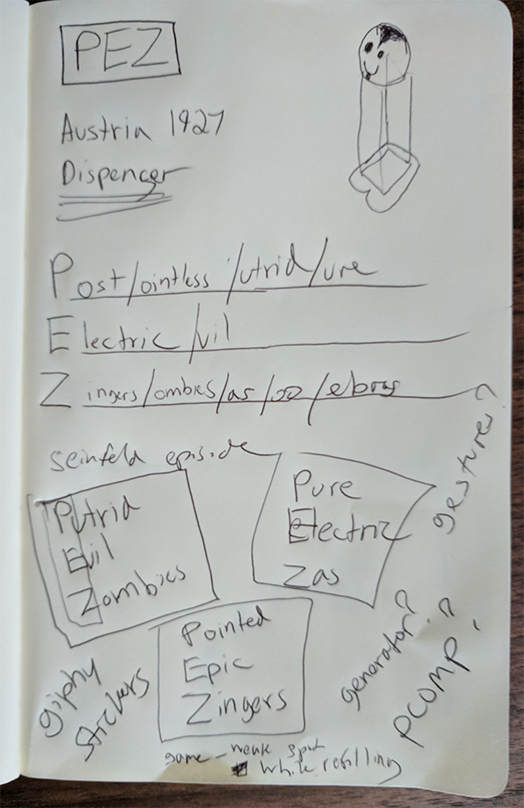 PEZ
Austria 1927
Dispencer
Post/ointless/utrid/ure
Electric/vil
Zingers/ombies/as/oo/ebras
seinfeld episode
Putrid
Evil
Zombies
Pure
Electric
Zas
Pointed
Epic
Zingers
gestures?
generator?
pcomp?
giphy
stickers
game - weak spot
while refilling